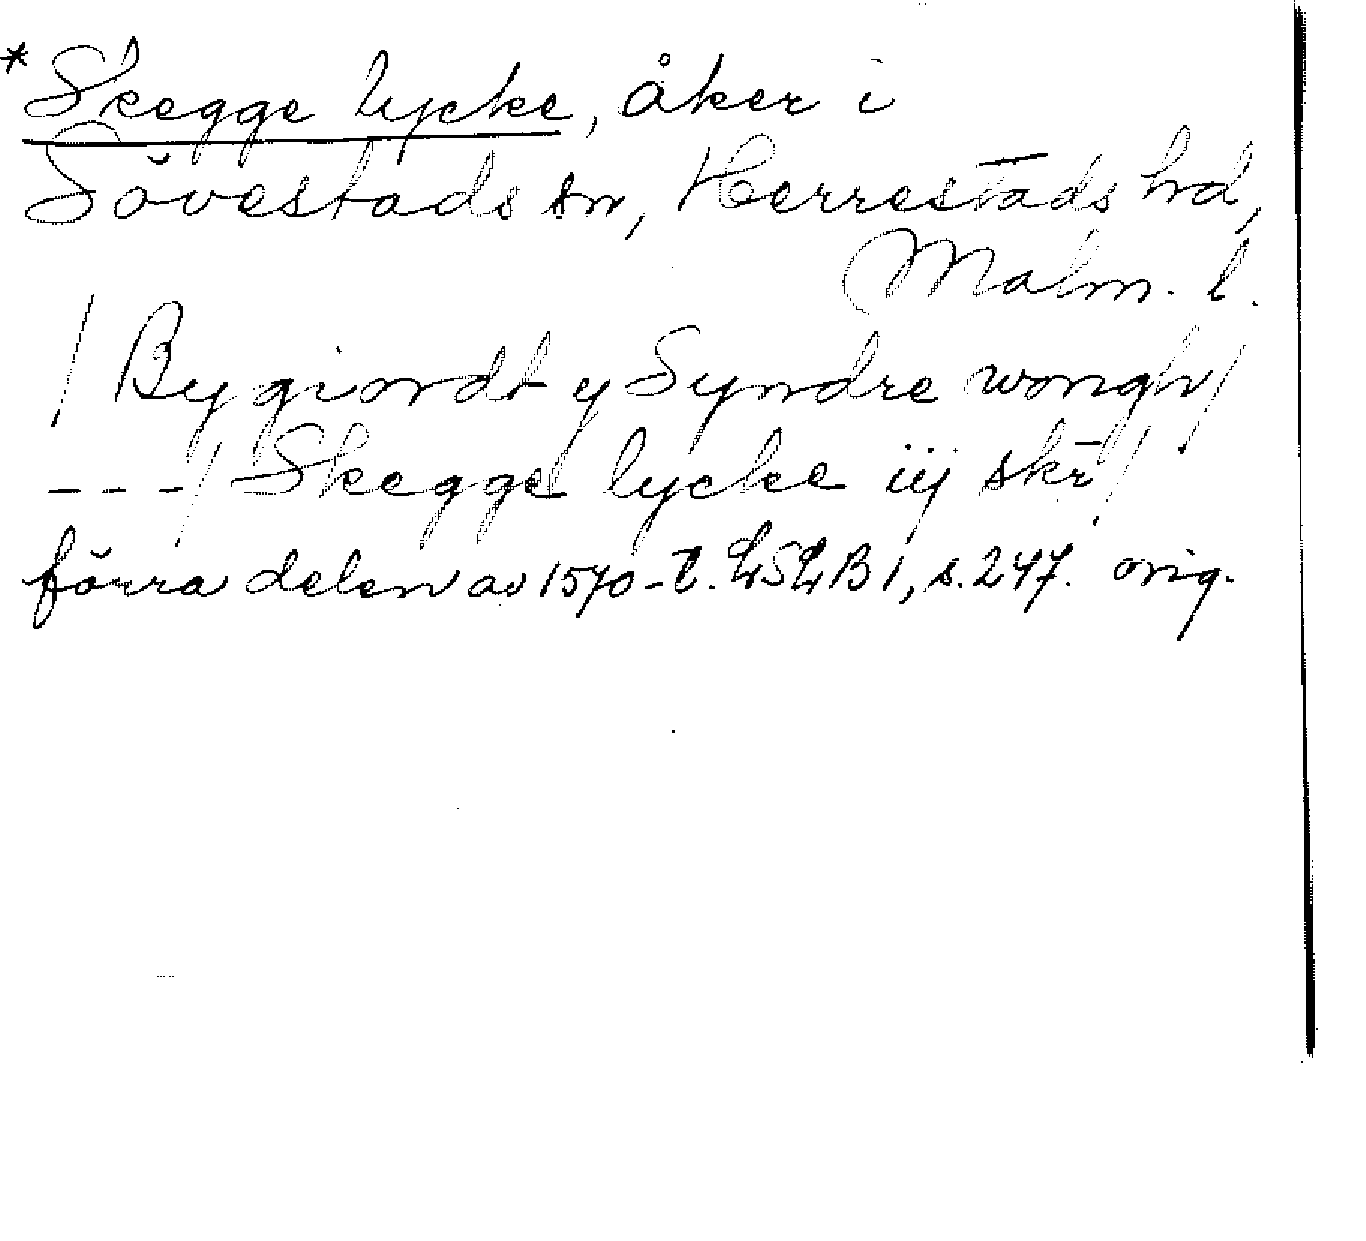 *Skegge lycke, åker i
Sövestads sn, Herrestads hd,
Malm. l.
/ Bygiordt y Syndre wongh /
--- / Skegge lycke iij skr /
förra delen av 1570-t. LSLB 1, s. 247. orig.